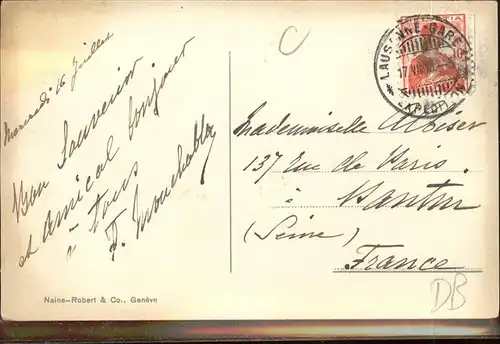 Mercredi 16 Juillet
Bon Souvenir
et Amical bonjour
à tous
F.
Naine–Robert & Co., Genève
LAUSANNE-GARE
17 VII
HELVETIA
Mademoiselle
137 Rue de Paris
à
(Seine)
France
DB